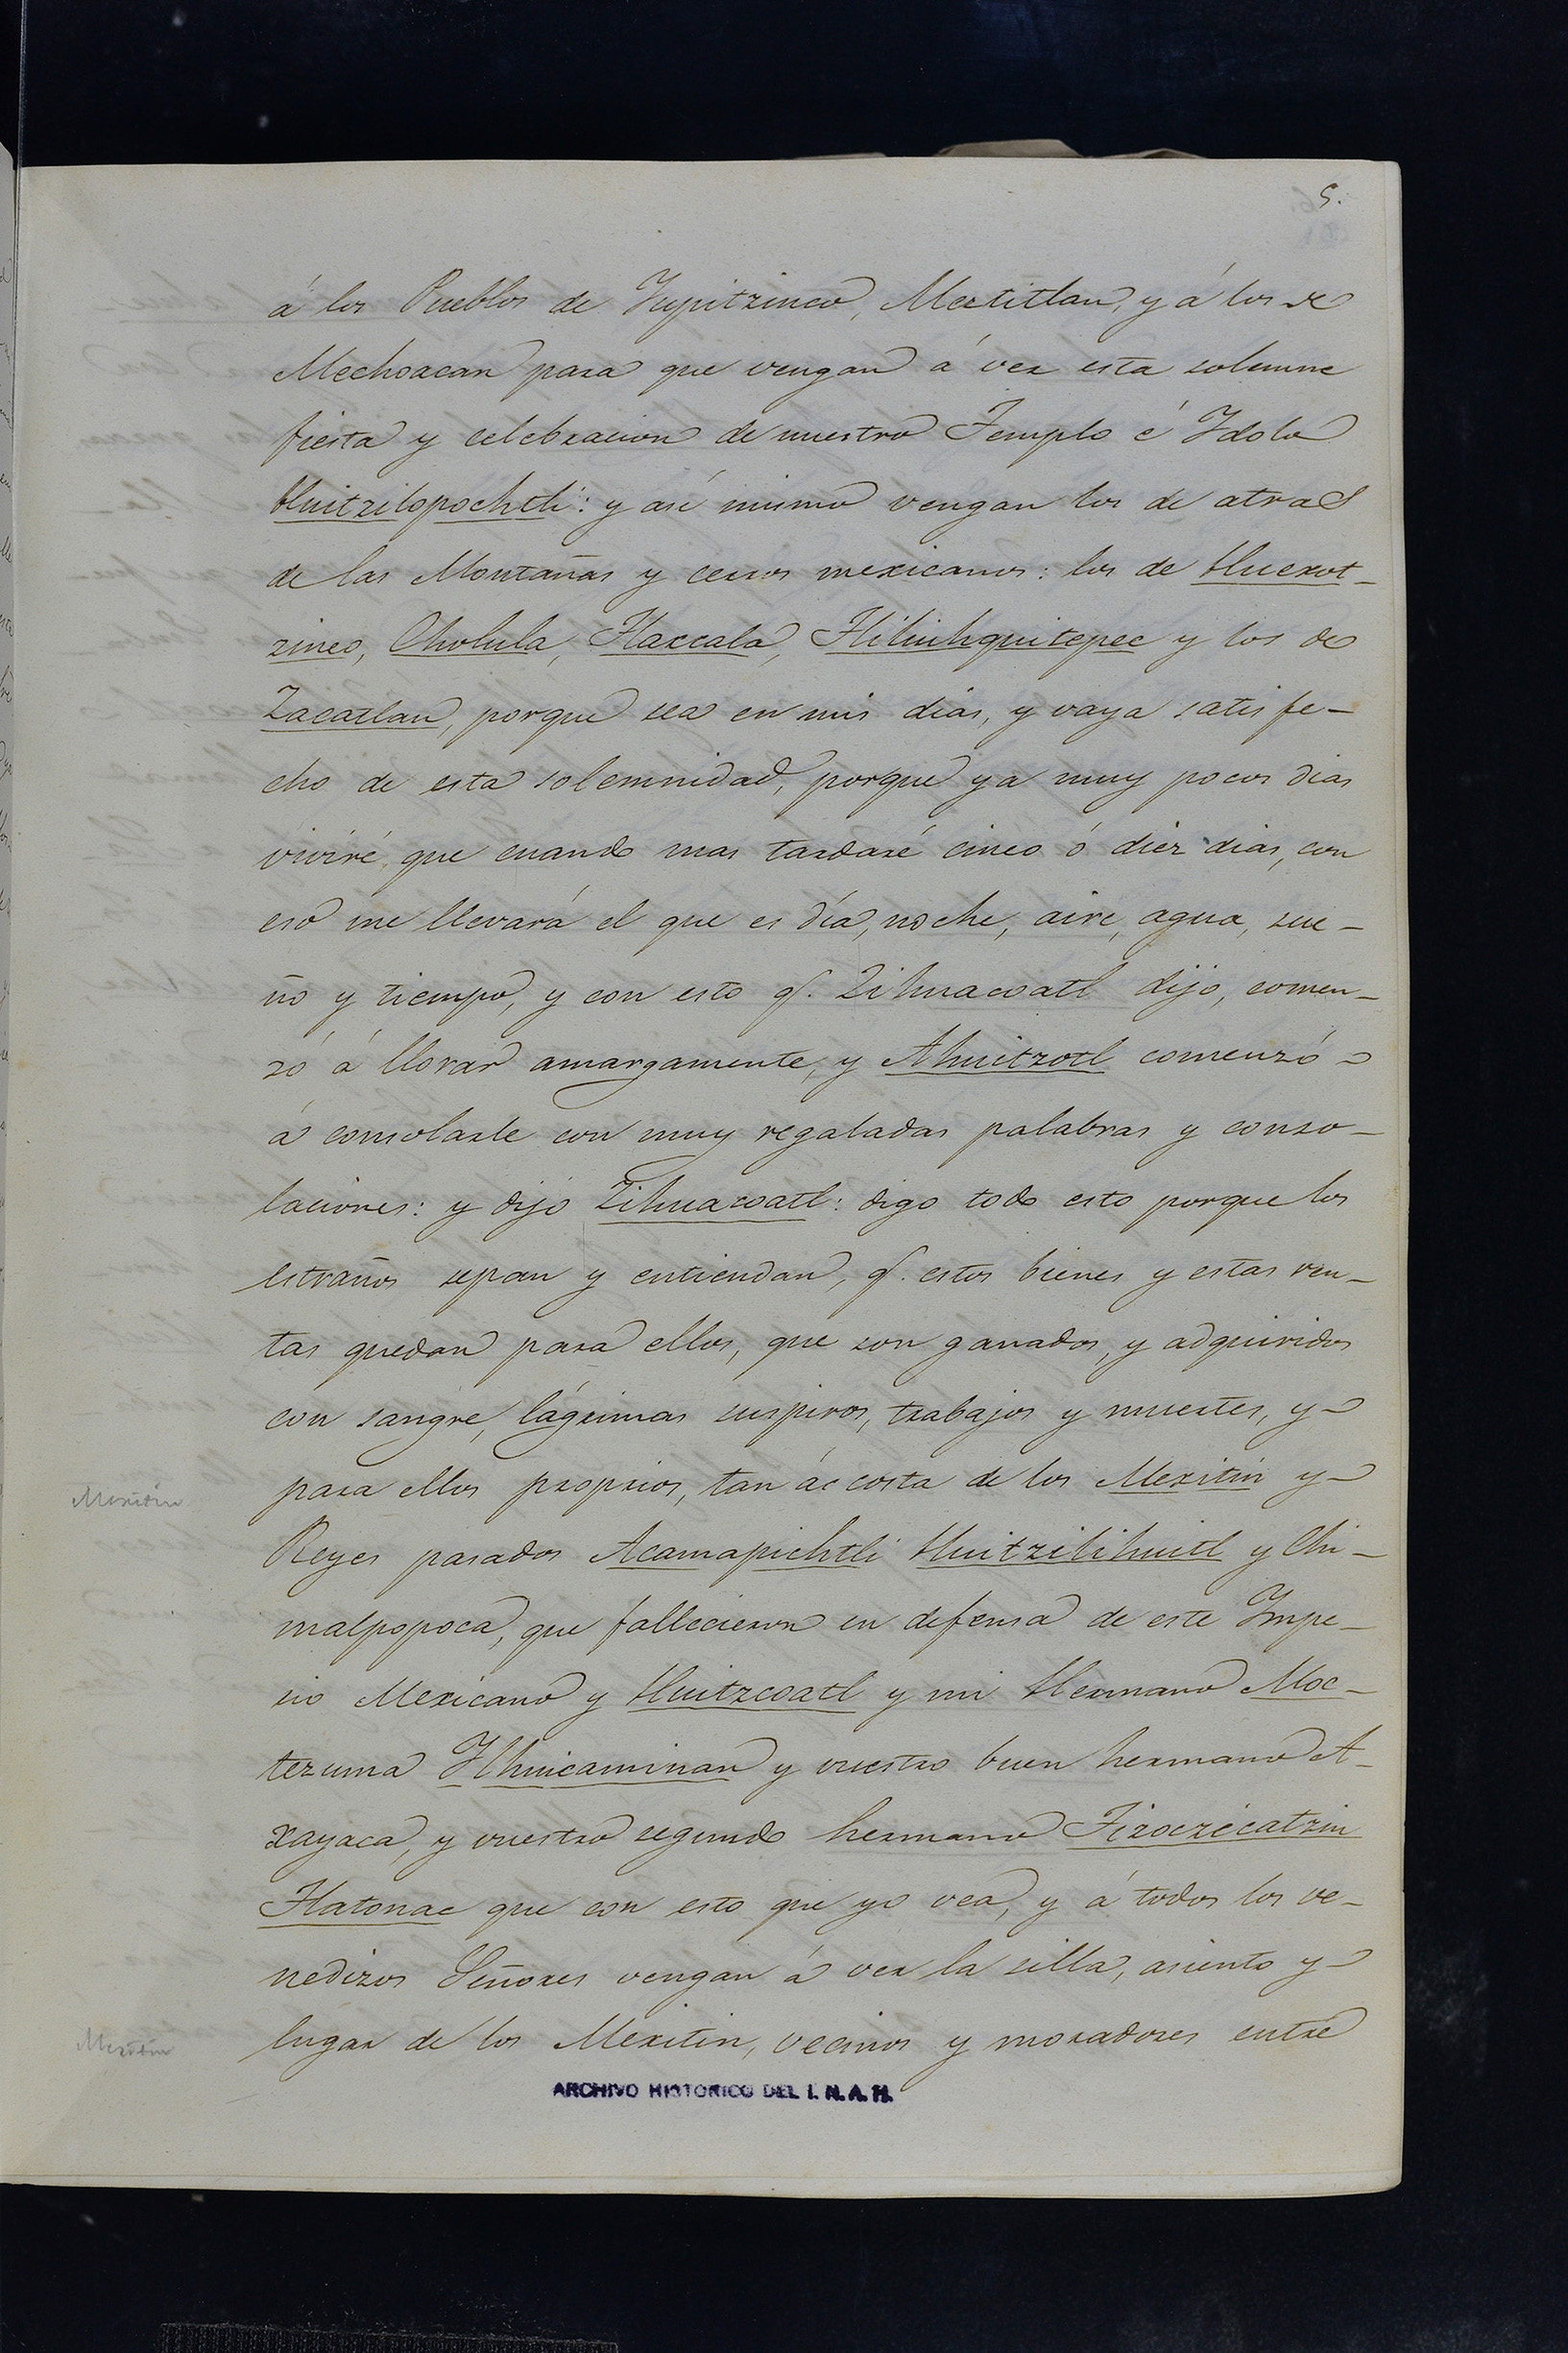 5.
á los Pueblos de Yupitzinco, Mextitlan, y á los de
Mechoacan para que vengan á ver esta solemne
fiesta y celebracion de nuestro Templo é Ydolo
Huitzilopochtli: y asi mismo vengan los de atras
de las Montañas y cerros mexicanos: los de Huexot-
zinco, Cholula, Tlaxcala, Tliliuhquitepec y los de
Zacatlan, porque sea en mis dias, y vaya satisfe-
cho de esta solemnidad, porque ya muy pocos dias
viviré, que cuando mas tardaré cinco ó diez dias, con
eso me llevará el que es día, noche, aire, agua, sue-
ño y tiempo, y con esto q. Zihuacoatl dijo, comen-
zó á llorar amargamente, y Ahuitzotl comenzó
á consolarle con muy regaladas palabras y conso-
laciones: y dijo Zihuacoatl: digo todo esto porque los
estraños sepan y entiendan, q. estos bienes y estas ren-
tas quedan para ellos, que son ganados, y adquiridos
con sangre, lágrimas suspiros, trabajos y muertes, y
para ellos proprios, tan á costa de los Mexitin y
Mexitin
Reyes pasados Acamapichtli Huitzilihuitl y Chi-
malpopoca, que fallecieron en defensa de este Impe-
rio Mexicano y Huitzcoatl y mi Hermano Moc-
tezuma Ylhuicaminan y vuestro buen hermano A-
xayaca, y vuestro segundo hermano Tizoczicatzin
Tlatonac que con esto que yo vea, y á todos los ve-
nedizos Señores vengan á ver la silla, asiento y
lugar de los Mexitin, vecinos y moradores entre
Mexitin
ARCHIVO HISTORICO DEL I. N. A. H.